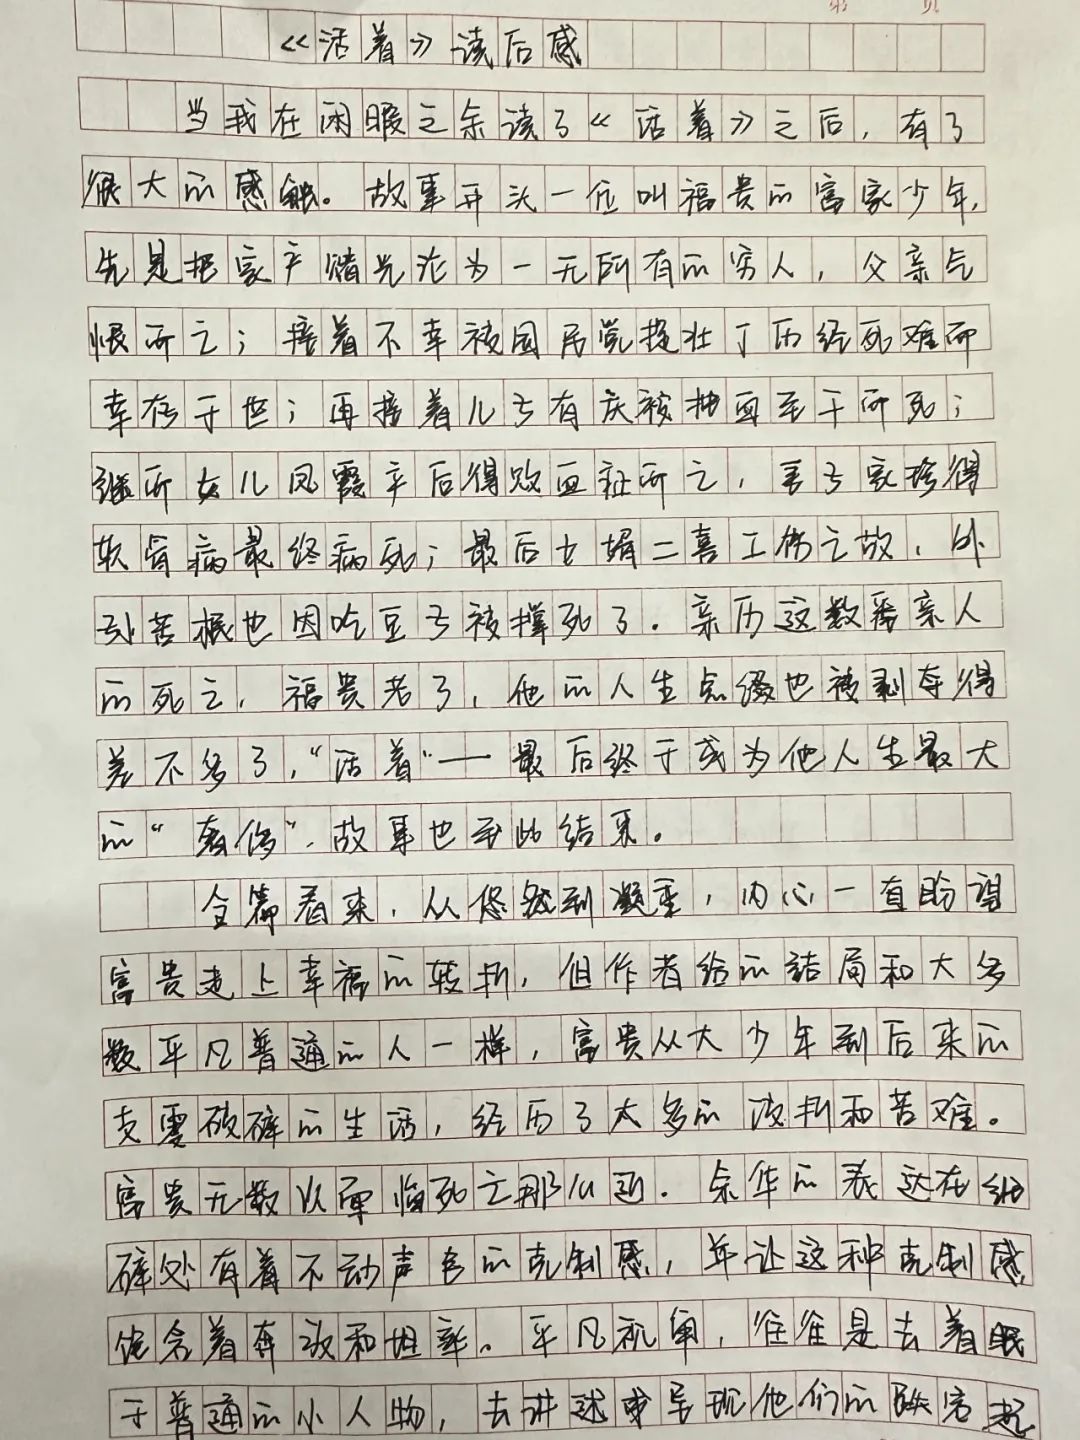 《活着》读后感
当我在闲暇之余读了《活着》之后，有了
很大的感触。故事开头一位叫福贵的富家少年，
先是把家产赌光沦为一无所有的穷人，父亲气
恨而亡；接着不幸被国民党捉壮丁历经死难而
幸存于世；再接着儿子有庆被抽血至干而死；
继而女儿凤霞产后得败血症而亡，妻子家珍得
软骨病最终病死；最后女婿二喜工伤之故，外
孙苦根也因吃豆子被撑死了。亲历这数番亲人
的死亡，福贵老了，他的人生点缀也被剥夺得
差不多了，“活着”——最后终于成为他人生最大
的“奢侈”，故事也到此结束。
全篇看来，从悠然到凝重，内心一直盼望
富贵走上幸福的转折，但作者给的结局和大多
数平凡普通的人一样，富贵从大少年到后来的
支零破碎的生活，经历了太多的波折和苦难。
富贵无数以面临死亡那么近。余华的表达在细
碎处有着不动声色的克制感，并让这种克制感
饱含着奔放和坦率。平凡视角，往往是去着眼
于普通的小人物，去讲述或呈现他们的跌宕起